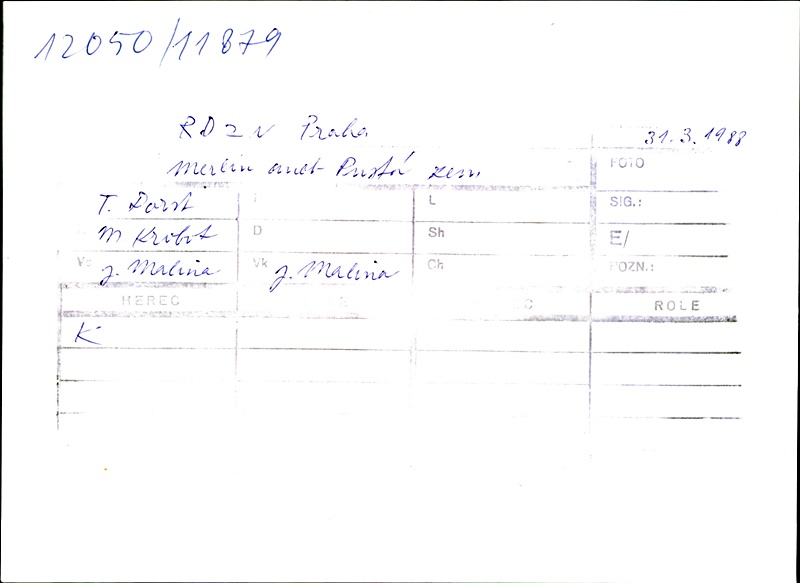 12050/11879
RDZN Praha 31.3.1988
Merlin aneb Pustá zem FOTO
T. Dorst L SIG.:
M Krobot D Sh E/
J. Malina Vk J. Malina Ch POZN.:
HEREC ROLE
K